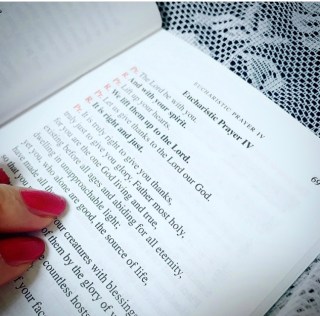 EUCHARISTIC PRAYER IV
69
Eucharistic Prayer IV
The Lord be with you.
And with your spirit.
Lift up your hearts.
We lift them up to the Lord.
Let us give thanks to the Lord our God.
It is right and just.
It is truly right to give you thanks,
truly just to give you glory, Father most holy,
for you are the one God living and true,
existing before all ages and abiding for all eternity,
dwelling in unapproachable light;
yet you, who alone are good, the source of life,
have made all
so that you
your creatures with blessings
of them by the glory of
countless hosts
of your face